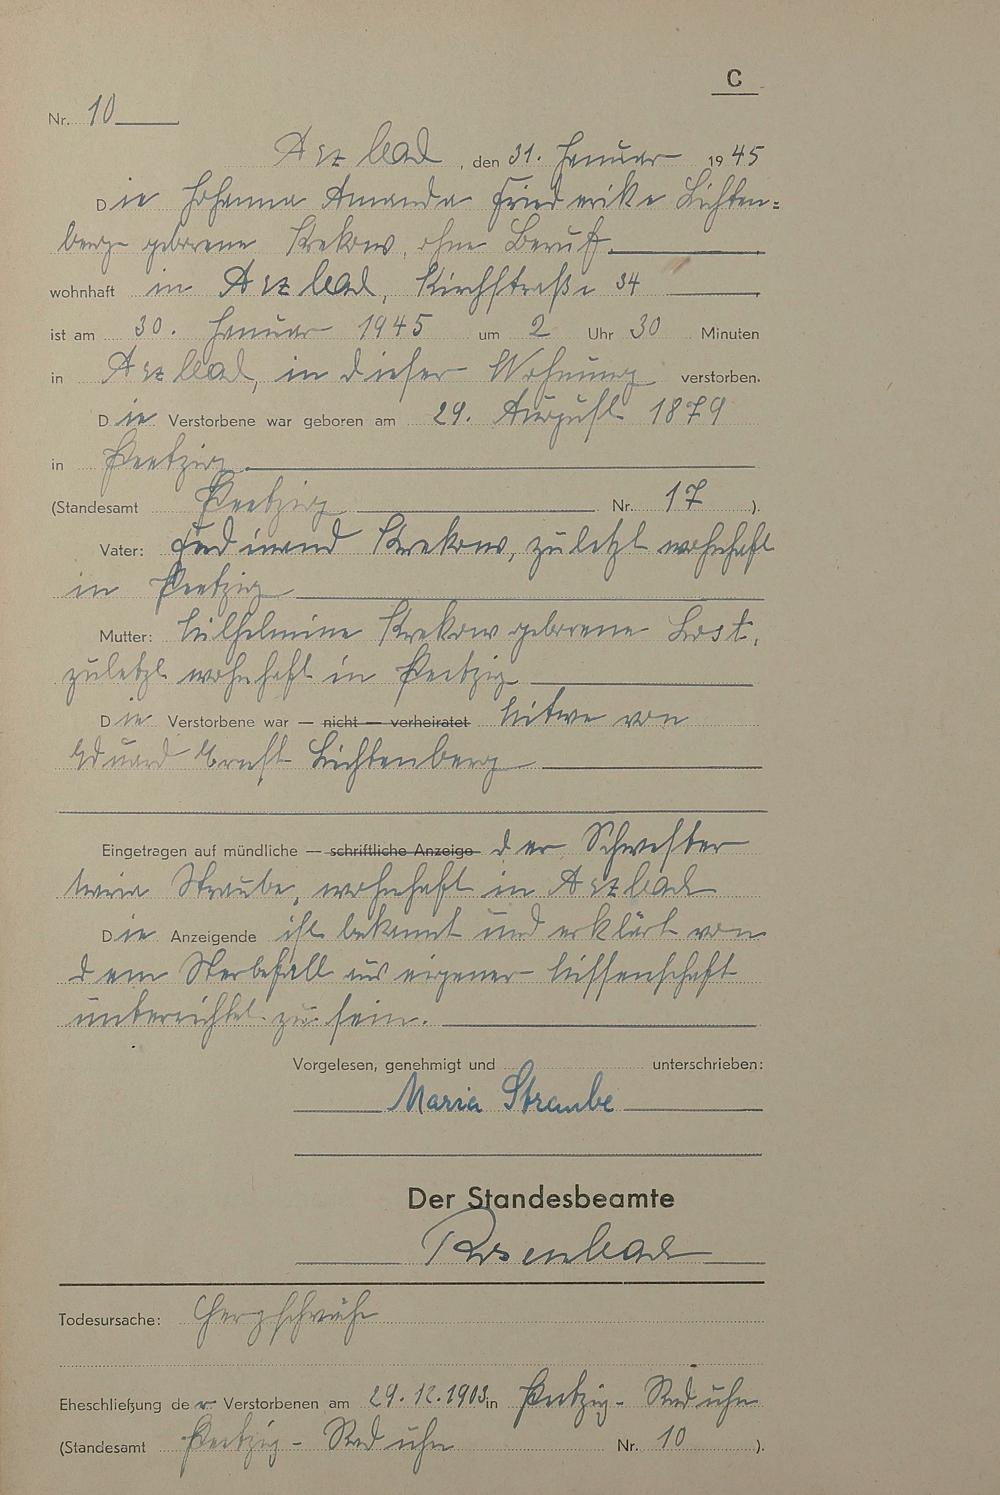 C
Nr. 10
, den 31. Januar 1945
Die Johanna Amanda Friederike Lichten=
berg geborene Krekow, ohne Beruf
wohnhaft in Kirchstraße 34
ist am 30. Januar 1945 um 2 Uhr 30 Minuten
in in dieser Wohnung verstorben.
Die Verstorbene war geboren am 29. August 1879
in Peetzig
(Standesamt Peetzig Nr. 17 ).
Vater: Ferdinand Krekow, zuletzt wohnhaft
in Peetzig
Mutter: Wilhelmine Krekow geborene Lost,
zuletzt wohnhaft in Peetzig
Die Verstorbene war — nicht — verheiratet Witwe von
Eduard Ernst Lichtenberg
Eingetragen auf mündliche — schriftliche Anzeige der Schwester
Maria Straube, wohnhaft in
Die Anzeigende ist bekannt und erklärt von
dem Sterbefall aus eigener Wissenschaft
unterrichtet zu sein.
Vorgelesen, genehmigt und unterschrieben:
Maria Straube
Der Standesbeamte
Todesursache: Herzschwäche
Eheschließung der Verstorbenen am 29.12.1903 in Peetzig-
(Standesamt Peetzig - Nr. 10 ).